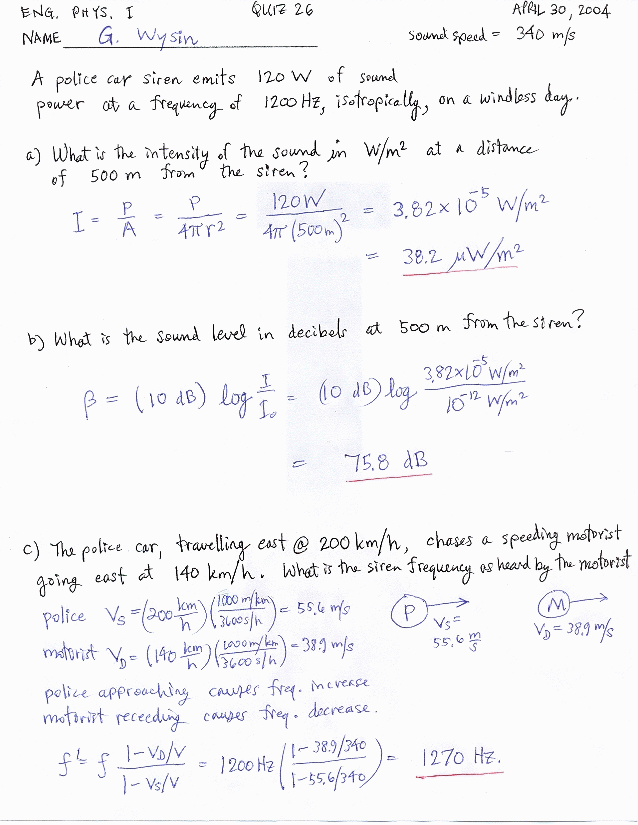 ENG. PHYS. I QUIZ 26 APRIL 30, 2004
NAME G. Wysin sound speed = 340 m/s
A police car siren emits 120 W of sound
power at a frequency of 1200 Hz, isotropically, on a windless day.
a) What is the intensity of the sound in W/m² at a distance
of 500 m from the siren?
I = P/A = P/4πr² = 120W/4π(500m)² = 3.82×10⁻⁵ W/m²
= 38.2 μW/m²
b) What is the sound level in decibels at 500 m from the siren?
β = (10 dB) log I/I₀ = (10 dB) log 3.82×10⁻⁵ W/m²/10⁻¹² W/m²
= 75.8 dB
c) The police car, travelling east @ 200 km/h, chases a speeding motorist
going east at 140 km/h. What is the siren frequency as heard by the motorist
police V_S = (200 km/h)(1000 m/km/3600 s/h) = 55.6 m/s
P V_S = 55.6 m/s
M V_D = 38.9 m/s
motorist V_D = (140 km/h)(1000 m/km/3600 s/h) = 38.9 m/s
police approaching causes freq. increase
motorist receeding causes freq. decrease.
f' = f 1 - V_D/V/1 - V_S/V = 1200 Hz (1 - 38.9/340/1 - 55.6/340) = 1270 Hz.